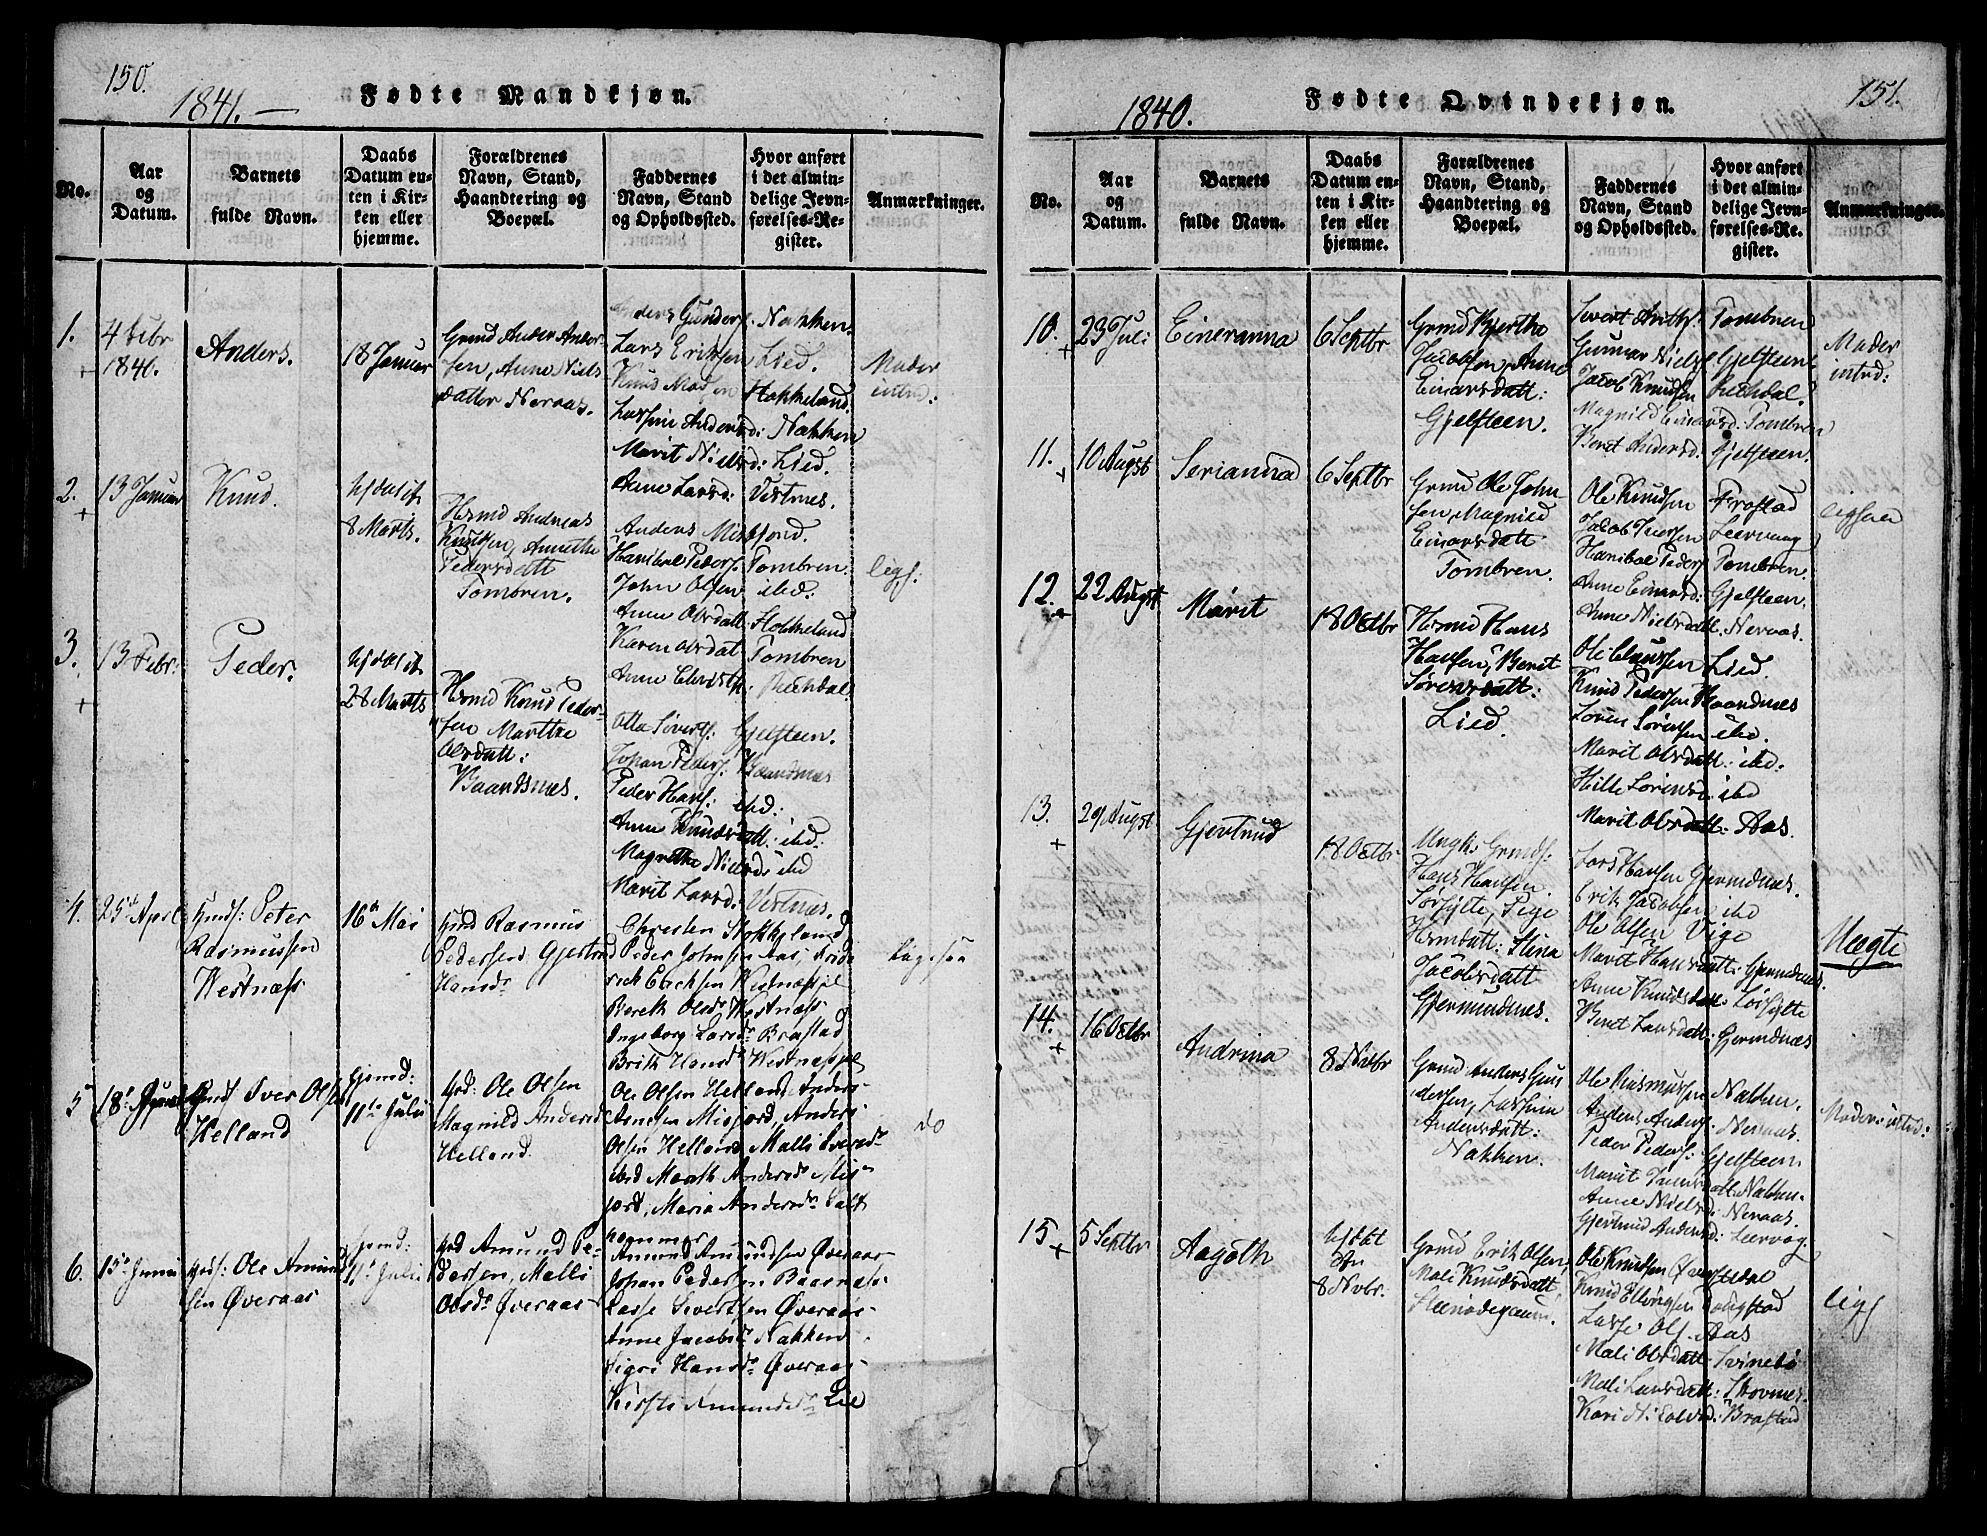 150.
1841.—
Fødte Mandkjøn.
No.
Aar
og
Datum.
Barnets
fulde Navn.
Daabs
Datum en-
ten i Kir-
ken eller
hjemme.
Forældrenes
Navn, Stand,
Haandtering og
Boepæl.
Faddernes
Navn, Stand
og Opholdssted.
Hvor anført
i det almin-
delige Jevn-
førelses-Re-
gister.
Anmærkninger.
1.
4 Febr
1840.
Anders.
18 Januar
Grmd Anders Ander-
sen, Anne Niels
datter Neraas.
Anders Gunders. Nakken.
Lars Eriksen Lied.
Knud Madsen Stokkeland.
Lassine Andersd: Nakken
Marit Nielsd: Lied.
Anne Larsd: Vestnes.
Moder
introd:
2.
13 Januar
Knud.
hjdøbt
8 Marts.
Hsmd Andreas
Knutsen, Annethe
Pedersdatt
Tombren.
Anders Misfjord.
Hanibal Peders. Tombren.
John Olsen ibd.
Anne Olsdatt: Stokkeland
Karen Olsdat Tombren
Anne Christ: Rechdal
ligs.
3.
13 Febr:
Peder.
hjdøbt
28 Marts
Hsmd Knud Peder-
sen Marthe
Olsdatt:
Baandsnes.
Otto Siverts. Gjelsteen.
Johan Peders. Baandsnes
Peder Hans: ibd:
Anne Knudsdatt. ibd:
Magnethe Nielsd: ibd
Marit Larsd. Vestnes.
4.
25de April
Hmds: Peter
Rasmussen
Westnæss
16de Mai
Hmd Rasmus
Pedersen Gjertrud
Hansdr
Christen Stokkeland
Peder Johnsen Aas, Fride
rich Erichsen Westnæss
Bereth Olsdr Westnæss
Ingeborg Larsdr Brastad
Brith Hansdr Westnæss
Ligesaa
5
18de Juni
Iver Olsen
Helland
hjemd:
11te Julii
Grd: Ole Olsen
Magnild Andersd
Helland.
Ole Olsen Helland, Anders
Arnesen Misfjord, Anders
Olsen Helland, Malli Iversdr
ibd Marth Andersdr Mis-
fjord, Maria Andersdr Salt
kammer
do
6.
15de Junii
Grds: Ole Amund
sen Øveraas
hjemd:
11te Julii
Grd Amund Pe-
dersen, Malli
Olsdr Øveraas
Amund Amundsen Øveraas
Johan Pedersen Baarsnæs
Lasse Sivertsen Øveraas
Anne Jacobsdr Nakken
Sigri Hansdr Øveraas
Kirsti Amundsdr Lie
151.
1840.
Fødte Qvindekjøn.
No.
Aar
og
Datum.
Barnets
fulde Navn.
Daabs
Datum en-
ten i Kir-
ken eller
hjemme.
Forældrenes
Navn, Stand,
Haandtering og
Boepæl.
Faddernes
Navn, Stand
og Opholdssted.
Hvor anført
i det almin-
delige Jevn-
førelses-Re-
gister.
Anmærkninger.
10.
23 Juli
Eineranna
6 Septbr
Grmd Bjerthe
Jacobsen, Anne
Einarsdatt:
Gjelsteen.
Sivert Arilds. Tombren
Gunnar Niels. Gjelsteen
Jacob Knudsen Rechdal.
Magnild Einarsd. Tombren
Beret Andersd. Gjelsteen.
Moder
introd:
11.
10 Augst
Serianna
6 Septbr
Grmd Ole John
sen, Magnild
Einarsdatt
Tombren.
Ole Knudsen Frostad
Jacob Iversen Leervaag
Hanibal Peders Tombren.
Anne Einarsd: Gjelsteen.
Anne Nielsdatt. Neraas.
ligesaa
12.
22 Augst
Marit
18 Octbr
Hsmd Hans
Hansen, Beret
Sørensdatt:
Lied.
Ole Claussen Lied.
Knud Pedersen Baandnes
Søren Sørensen ibd.
Marit Olsdatt: ibd:
Hille Sørensd: ibd
Marit Olsdatt: Aas.
13.
29 Augst
Gjertrud
18 Octbr
Ungk: Grmds:
Hans Hansen.
Sørsylte, Pige
Hsmdatt: Stina
Jacobsdatt
Gjermundnes.
Lars Hansen Gjermdnes.
Erik Jacobsen ibd
Ole Olsen Vige
Marit Hansdatt: Gjermdnes.
Anne Knudsdatt: Sørsylte
Beret Larsdatt: Gjermdnæs
Uægte
14.
16 Octbr
Andrina
8 Novbr
Grmd Anders Gun
dersen, Lassina
Andersdatt:
Nakken.
Ole Rasmussen Nakken.
Anders Anders. Neraas.
Peder Peders: Gjelsteen
Marit Iversdatt Nakken.
Anne Nielsd: Neraas.
Gjertrud Andersd: Leervog.
Moder introd:
15
5 Septbr
Aagoth
hjdøbt
8 Novbr.
Grmd Erik Olsen,
Mali Knudsdatt.
Ole Knudsen Øverstedal
Knud Ellingsen Dougstad
Lasse Ols. Aas
Mali Olsdatt. Svinebø
Mali Larsdatt: Skovnes.
Kari Nielsd: Brastad
ligs